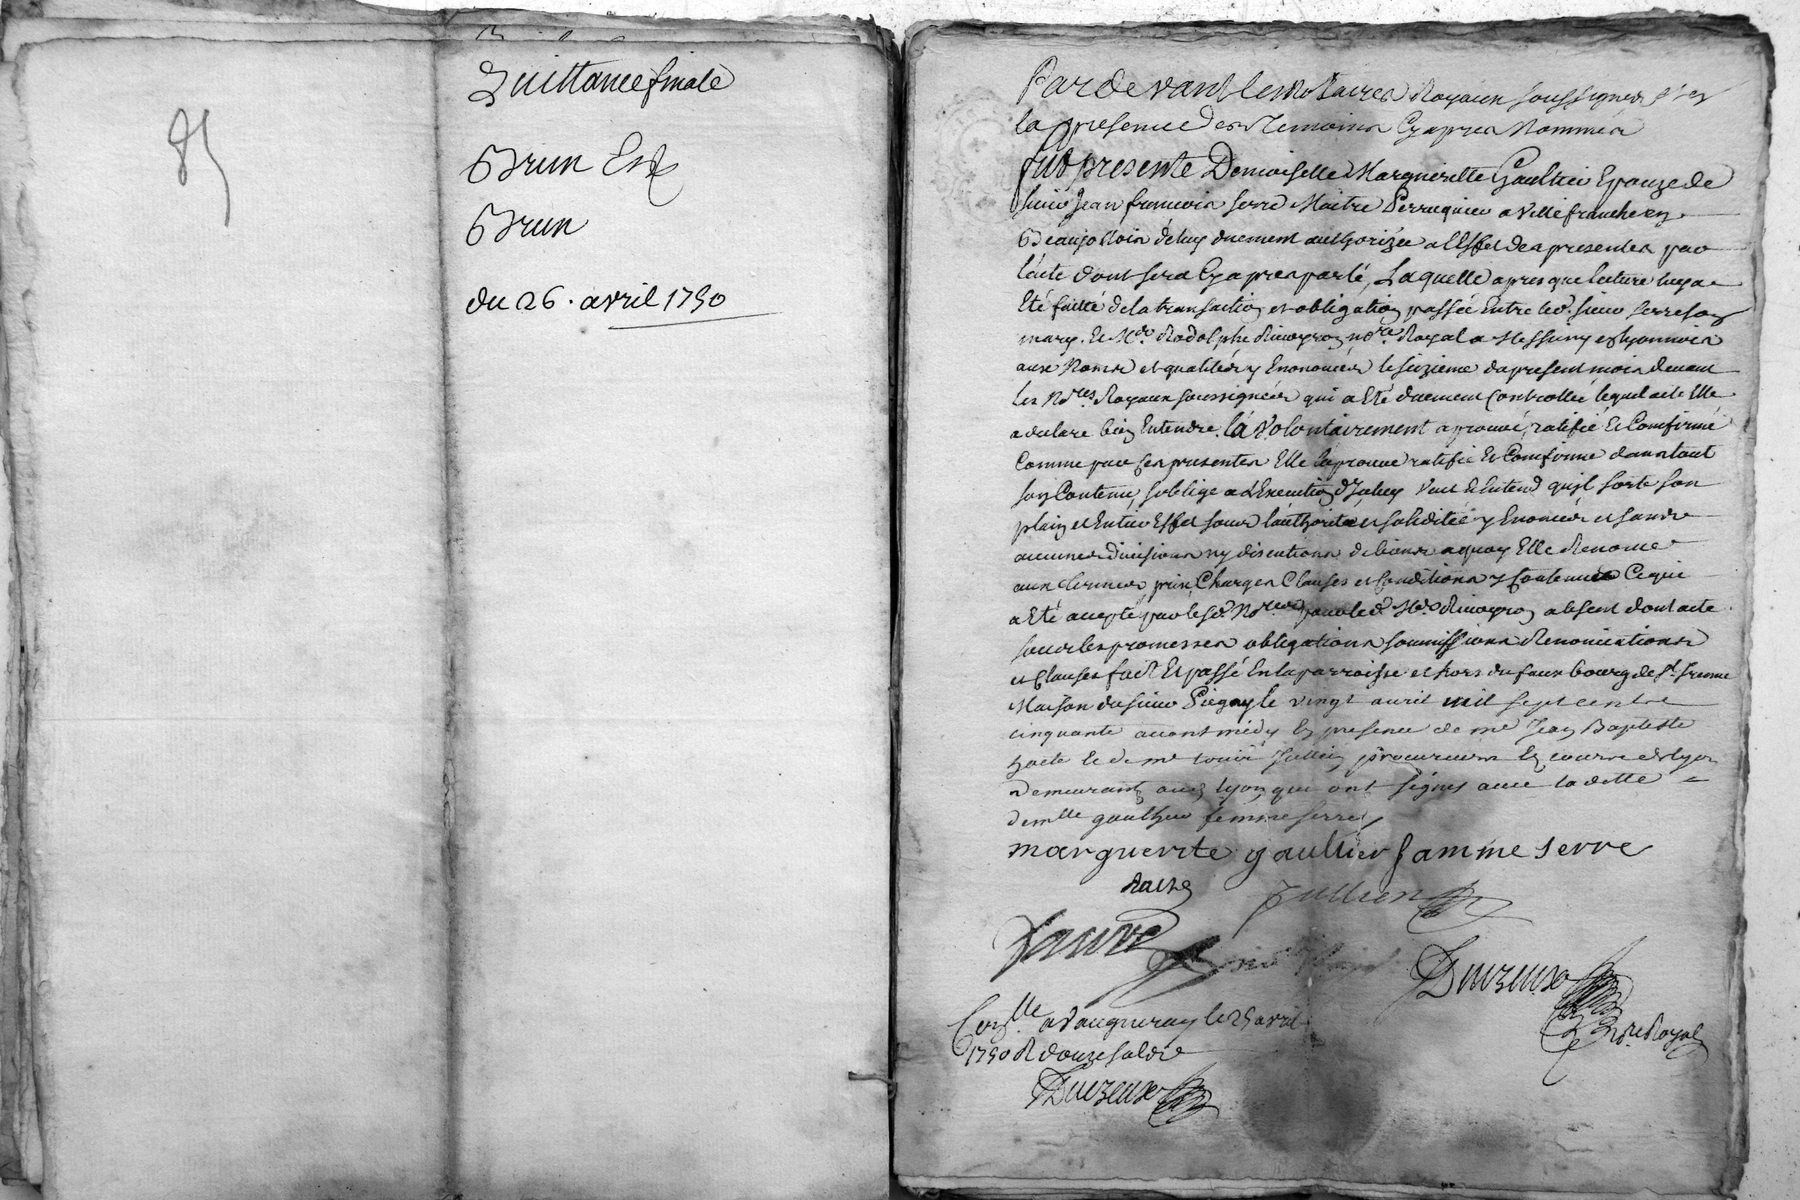 85
Quittance finale
Brun Est
Brun
du 26. avril 1750
Pardevant les Notaires Royaux soussignés & en
la presence des Temoins Cyapres Nommés
fut presente Demoiselle Margueritte Gaultier Epouze de
sieur Jean francois serre Maitre Perruquier a Villefranche en
Beaujollois de luy duement authorizée a l'Effet des presentes par
l'acte dont sera Cyapres parlé, Laquelle apres que lecture luy a
Eté faitte de la transaction et obligation passée Entre led. sieur serre son
mary. Et Me. Rodolphe nore. Royal a Messimy en lyonnois
aux Noms et qualités y Enoncées le seizieme du present mois devant
les Nores Royaux soussignés qui a Eté duement Controllé lequel acte Elle
a declaré bien Entendre. l'a Volontairement aprouvé, ratifié Et Comfirmé
Comme par Ces presentes Elle l'aprouve ratifie Et Comfirme dans tout
son Contenu, s'oblige a l'Execution d'Iceluy Veut Et Entend qu'il sorte son
plain et Entier Effet sous l'authorité et solidité y Enoncés et sans
aucunes divisions ny discutions de biens a quoy Elle Renonce
aux termes, prix, Charges Clauses et Conditions y Contenues Ce qui
a Eté accepté par lesd. Nores pour led. Me. absent dont acte
sous les promesses obligations soumissions Renonciations
et Clauses fait Et passé En la parroisse et hors du faux bourg de St. Irenée
Maison du sieur le vingt avril mil sept cents
cinquante avant midy En presence de me Jean Baptiste
et de me Jullien procureurs Es cours de lyon
demeurants aud. lyon qui ont signés avec la ditte
demlle gaulthier femme serre
marguerite gaultier famme serre
Jullien
Duvzeux
nore. Royal
Conlle. a Vaugneray le 25 avril
1750 R douze sols
Duvzeux